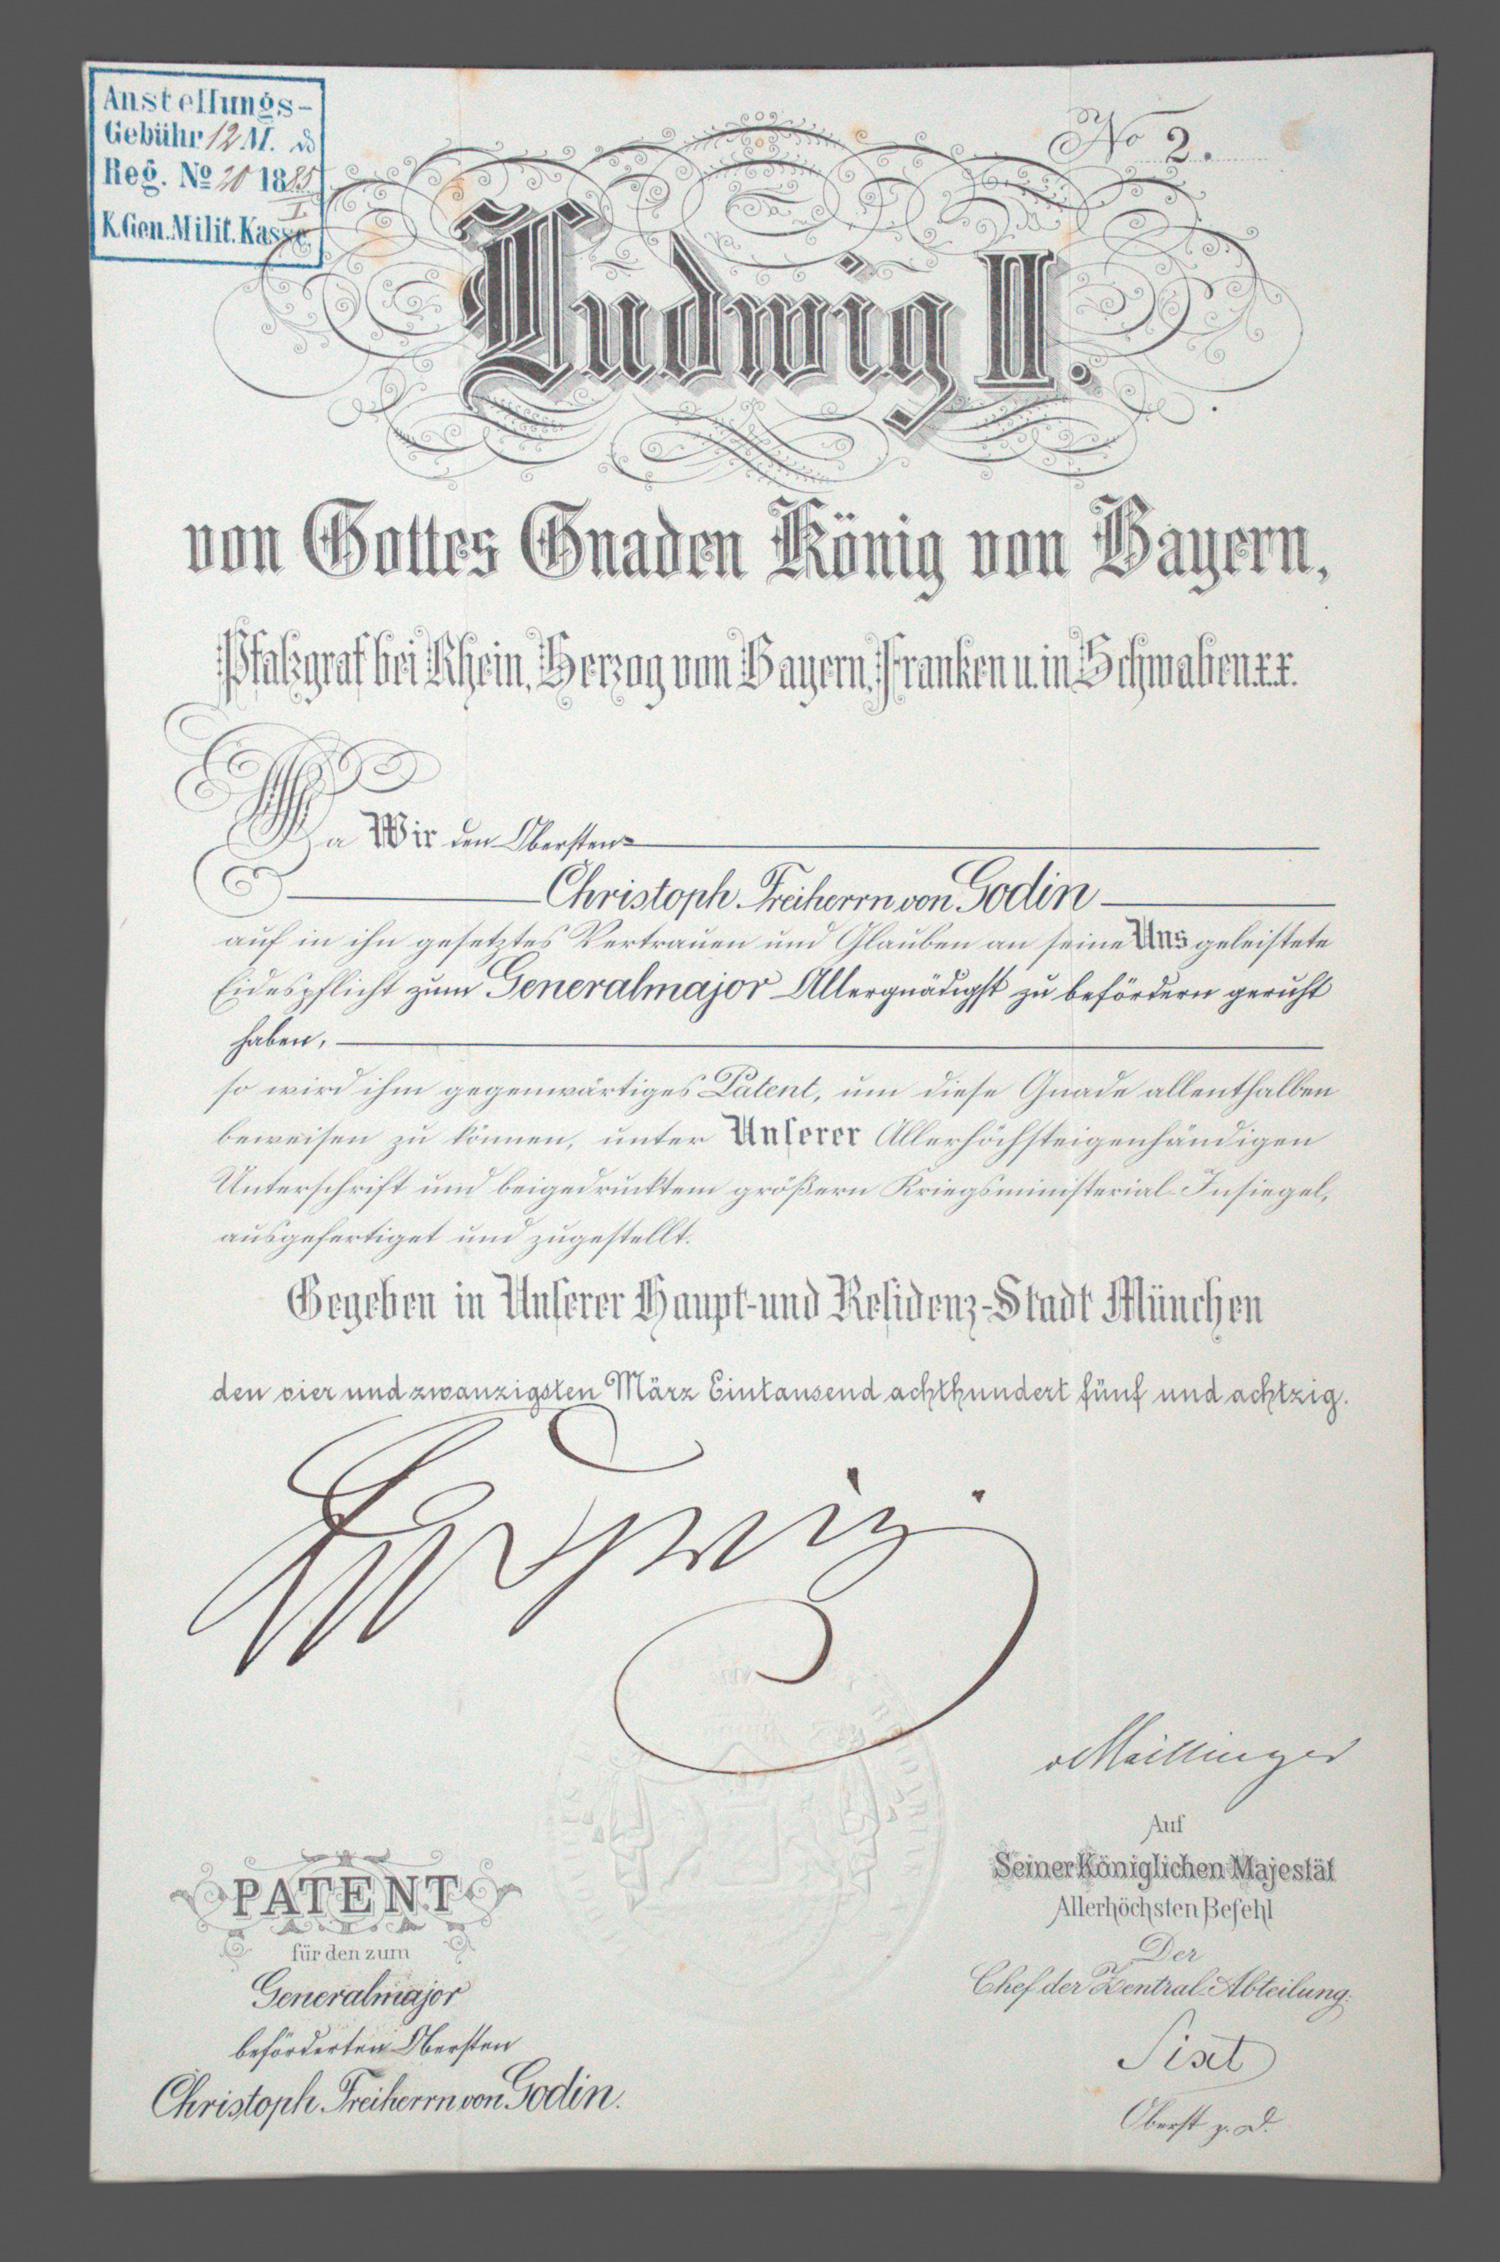 Anstellungs-
Gebühr 12 M.
Reg. No 20 1885
I
K. Gen. Milit. Kasse
No 2.
Ludwig II.
von Gottes Gnaden König von Bayern,
Pfalzgraf bei Rhein, Herzog von Bayern, Franken u. in Schwaben x.x.
Da Wir den Obersten
Christoph Freiherrn von Godin
auf in ihn gesetztes Vertrauen und Glauben an seine Uns geleistete
Eidespflicht zum Generalmajor Allergnädigst zu befördern geruht
haben,
so wird ihm gegenwärtiges Patent, um diese Gnade allenthalben
beweisen zu können, unter Unserer Allerhöchsteigenhändigen
Unterschrift und beigedrucktem größern Kriegsministerial-Insiegel,
ausgefertiget und zugestellt.
Gegeben in Unserer Haupt- und Residenz-Stadt München
den vier und zwanzigsten März Eintausend achthundert fünf und achtzig.
Ludwig
v Maillinger
Auf
Seiner Königlichen Majestät
Allerhöchsten Befehl
Der
Chef der Zentral-Abteilung:
Sixt
Oberst z. D.
PATENT
für den zum
Generalmajor
beförderten Obersten
Christoph Freiherrn von Godin.